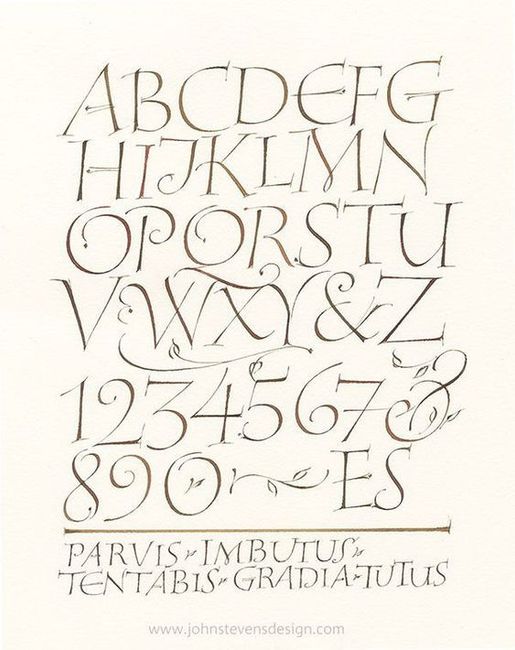 ABCDEFG
HIJKLMN
OPQRSTU
VWXY&Z
1234567&
890 ES
PARVIS IMBUTUS
TENTABIS GRADIA TUTUS
www.johnstevensdesign.com